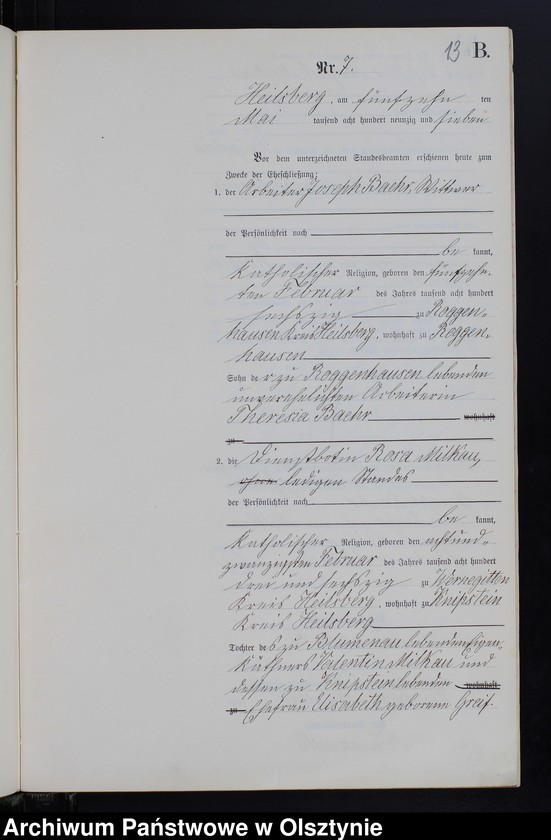 13 B.
Nr. 7.
Heilsberg, am fünfzehn ten
Mai tausend acht hundert neunzig und sieben
Vor dem unterzeichneten Standesbeamten erschienen heute zum
Zwecke der Eheschließung:
1. der Arbeiter Joseph Baehr, Wittwer
der Persönlichkeit nach
be kannt,
katholischer Religion, geboren den fünfzehn-
ten Februar des Jahres tausend acht hundert
sechszig zu Roggen-
hausen Kreis Heilsberg, wohnhaft zu Roggen-
hausen
Sohn der zu Roggenhausen lebenden
unverehelichten Arbeiterin
Theresia Baehr wohnhaft
zu
2. die Dienstbotin Rosa Milkau,
ledigen Standes
der Persönlichkeit nach
be kannt,
katholischer Religion, geboren den achtund-
zwanzigsten Februar des Jahres tausend acht hundert
drei und sechszig zu Wernegitten
Kreis Heilsberg, wohnhaft zu Knipstein
Kreis Heilsberg
Tochter des zu Blumenau lebenden Eigen-
käthners Valentin Milkau und
dessen zu Knipstein lebenden wohnhaft
zu Ehefrau Elisabeth geborene Greif.
Archiwum Państwowe w Olsztynie